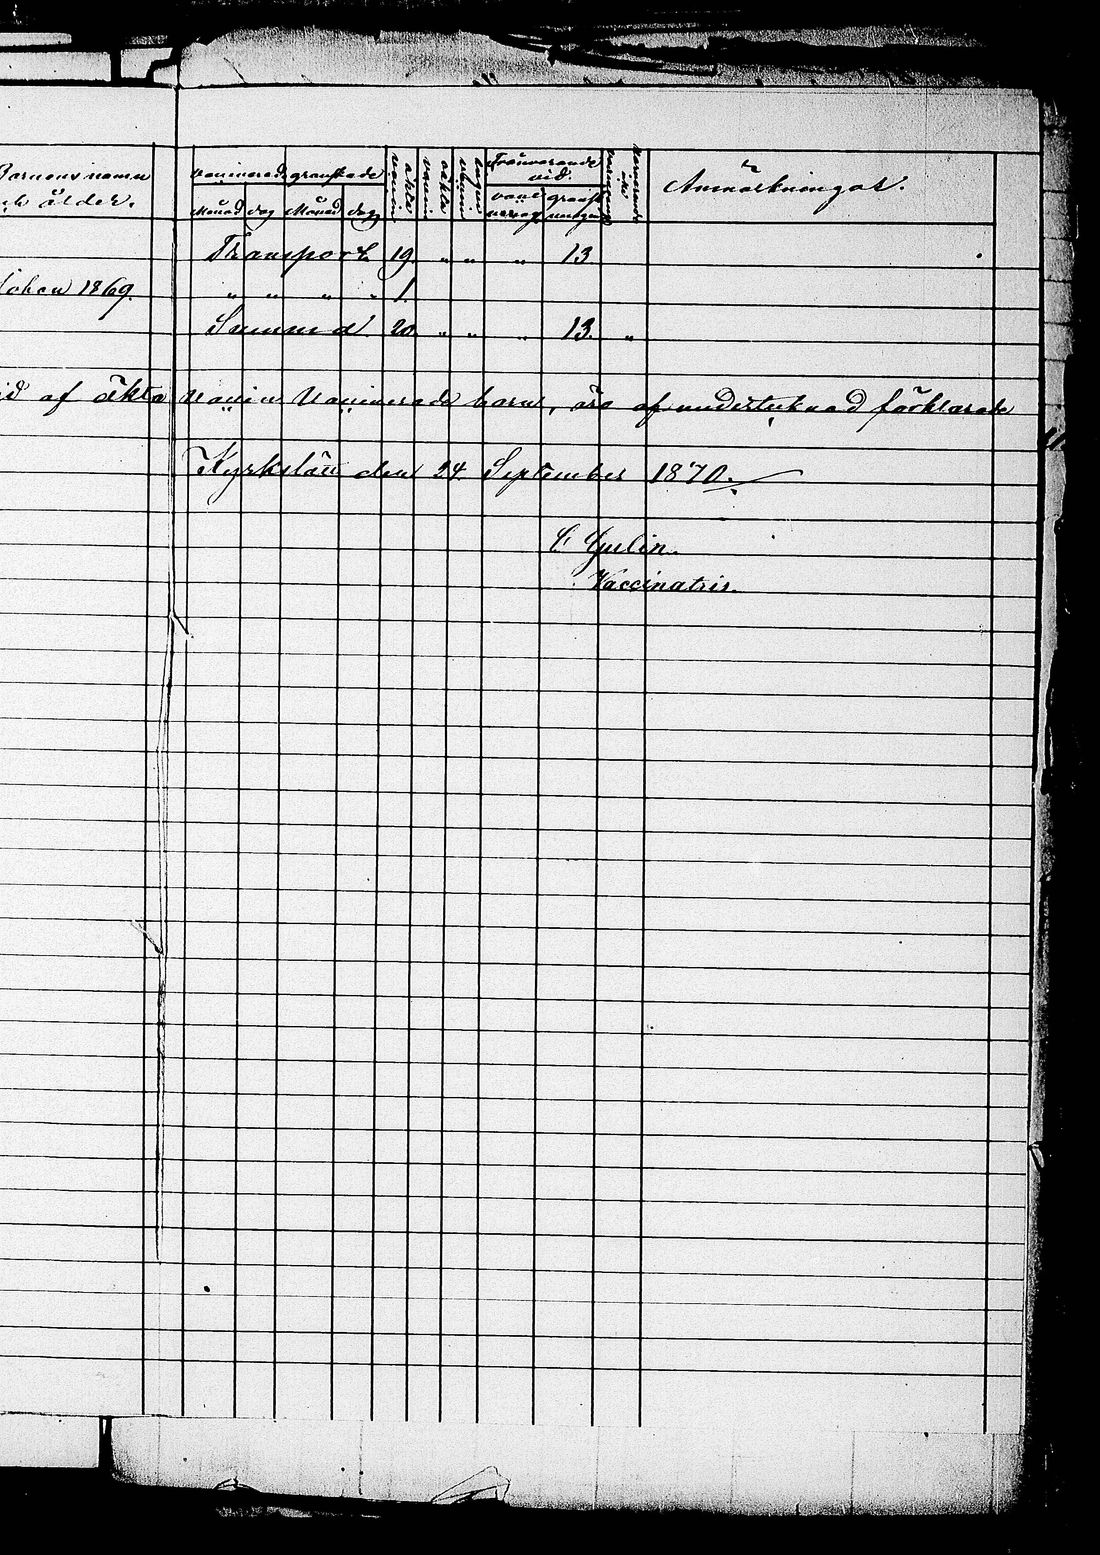 Barnens namn
och ålder.
vaccinerade granskade
Månad dag Månad dag
äkta vaccin
oäkta vaccin
ingen vaccin
Frånvarande vid.
vacc granskningen
Anmärkningar.
Transport. 19. " " " 13.
1869. " " " " 1.
Summa 20. " " " 13. "
af äkta vaccin Vaccinerade barn, äro af undertecknad förklarade
Kyrkslätt den 24. September 1870.
C Gulin.
Vaccinatris.